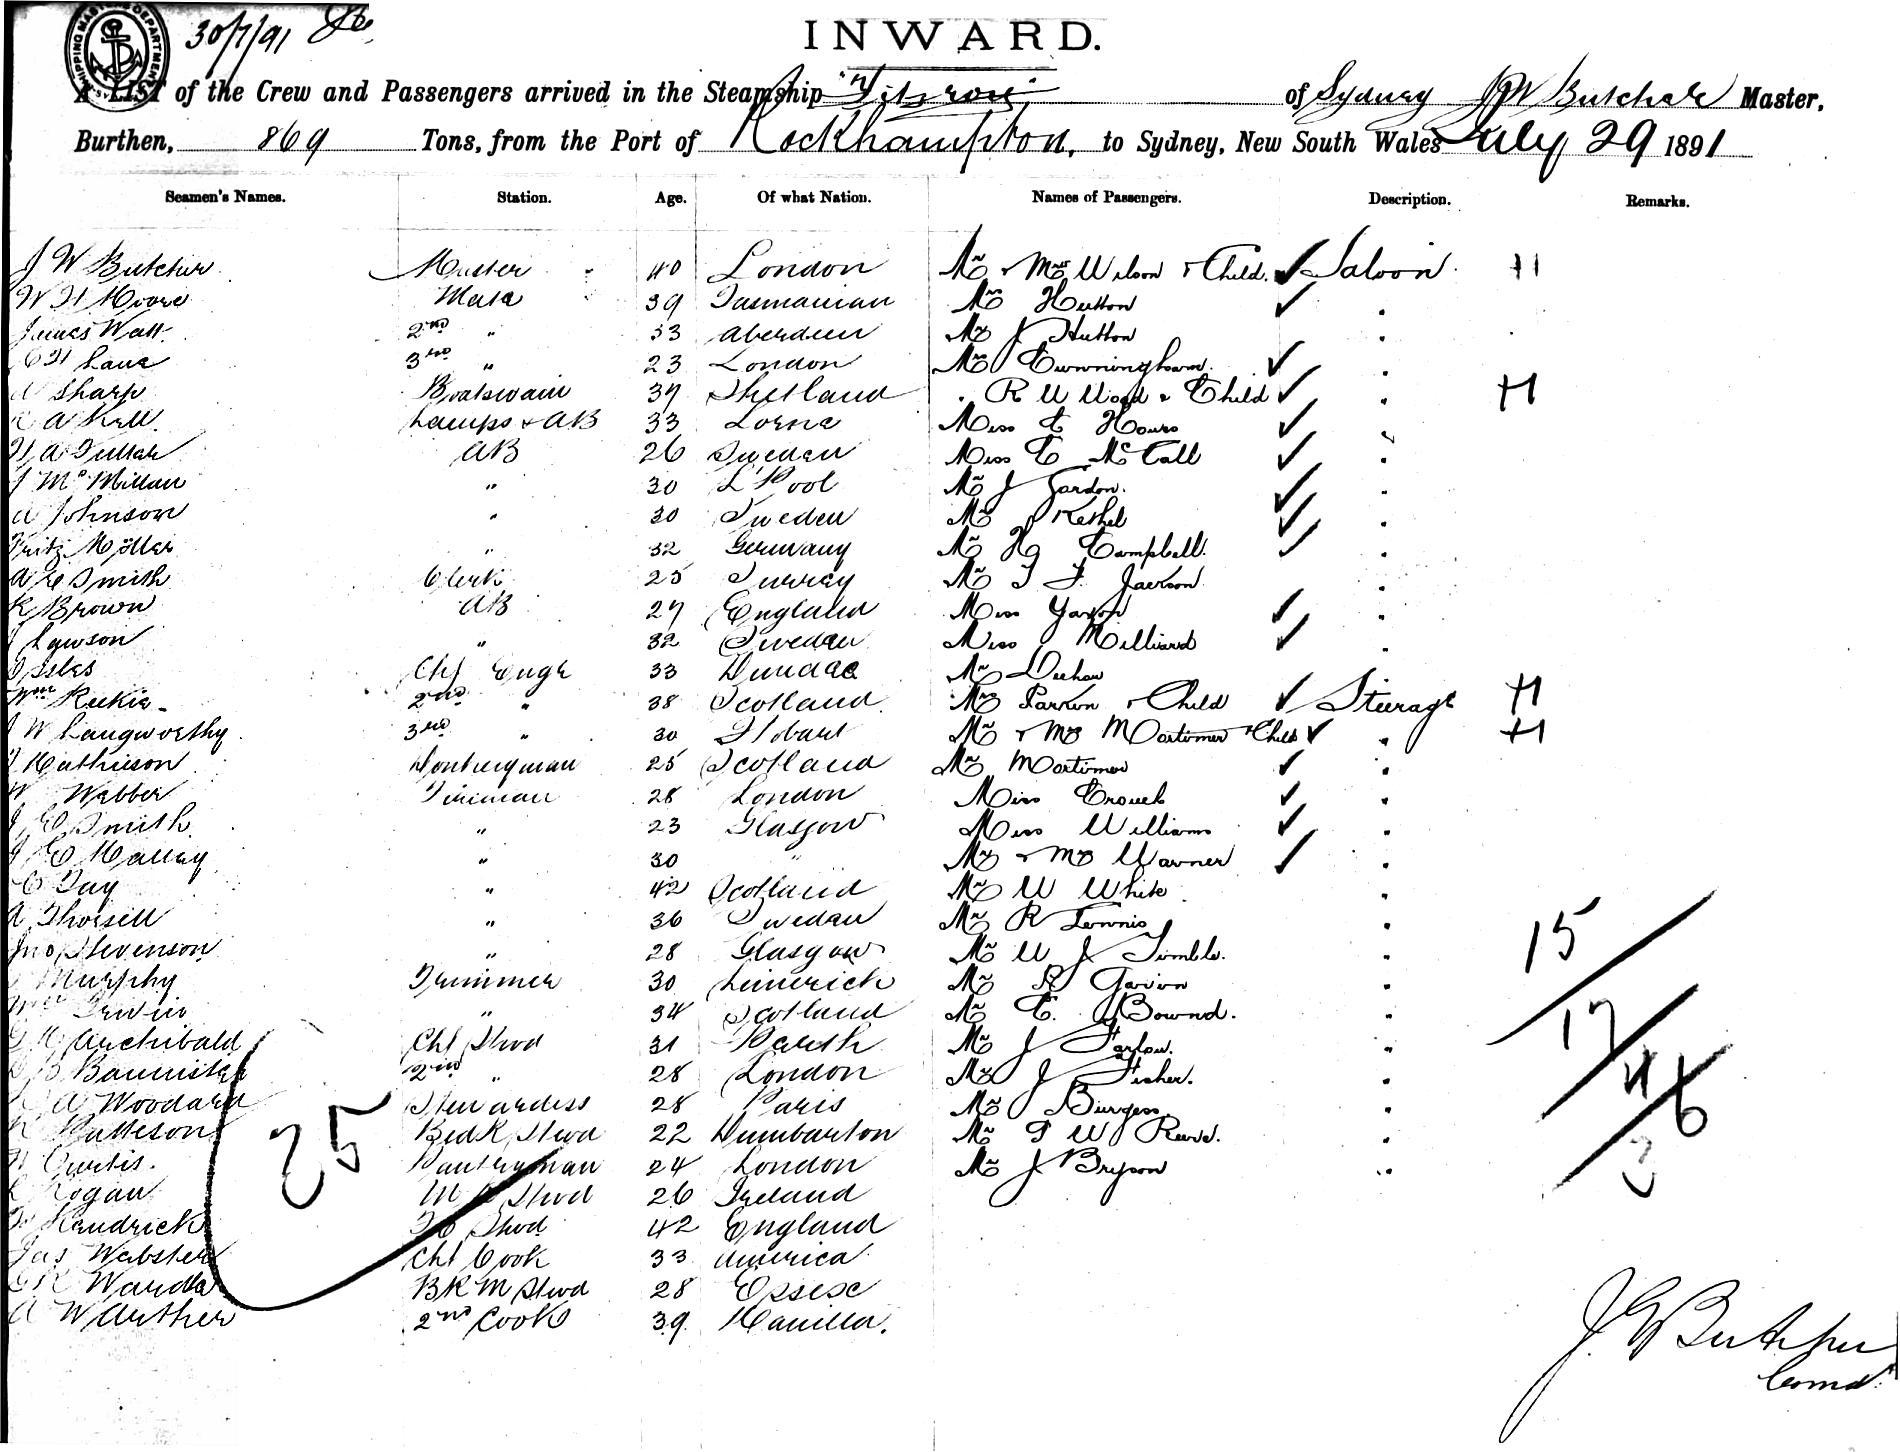 SHIPPING MASTER'S DEPARTMENT
30/7/91
INWARD.
A LIST of the Crew and Passengers arrived in the Steamship "Fitzroy" of Sydney J W Butcher Master,
Burthen, 869 Tons, from the Port of Rockhampton, to Sydney, New South Wales July 29 1891
Seamen's Names. Station. Age. Of what Nation. Names of Passengers. Description. Remarks.
J W Butcher Master 40 London Mr & Mrs Wilson & Child. Saloon H
W H Moore Mate 39 Tasmanian Mrs Hutton
James Watt 2nd " 33 Aberdeen Mr J Hutton
C H Lane 3rd " 23 London Mrs Cunningham
Sharp Boatswain 37 Shetland R W Wood & Child H
A Kell Lamps & AB 33 Lorne Miss Hours
AB 26 Sweden Miss McCall
J McMillan " 30 L'Pool Mr J Gordon.
A Johnson " 30 Sweden Mr
Fritz Möller " 32 Germany Mr H Campbell.
A E Smith Clerk 25 Surrey Mr T F. Jackson
R Brown AB 27 England Miss
J Lawson " 32 Sweden Miss Milliard
Isles Chf Engr 33 Dundee Mr
Wm 2nd " 38 Scotland Mrs & Child Steerage H
J W Langworthy 3rd " 30 Hobart Mr & Mrs Mortimer & Child H
Mathieson Donkeyman 25 Scotland Mr Mortimer
W Webber Fireman 28 London Miss Crouch
J E Smith " 23 Glasgow Miss Williams
J " 30 " Mr & Mrs Warner
C " 42 Scotland Mr W White
A Thorsell " 36 Sweden Mr R
Jno Stevenson " 28 Glasgow Mr W J
Murphy Trimmer 30 Limerick Mr Gavin
Wm Irwin " 34 Scotland Mr C. Bownd.
Archibald Chf Stwd 31 Perth Mr J Farlow.
Bannister 2nd " 28 London Mr J Fisher.
A Woodard Stewardess 28 Paris Mr Burgess
Patteson Bed R Stwd 22 Dumbarton Mr W
H Curtis. Pantryman 24 London Mr J Bryson
Hogan Stwd 26 Ireland
Kendrick Stwd 42 England
Jas Webster Chf Cook 33 America
BR M Stwd 28 Essex
A W Arther 2nd Cook 39 Manilla.
25
15
17
4
6
3
J W Butcher
Comdr